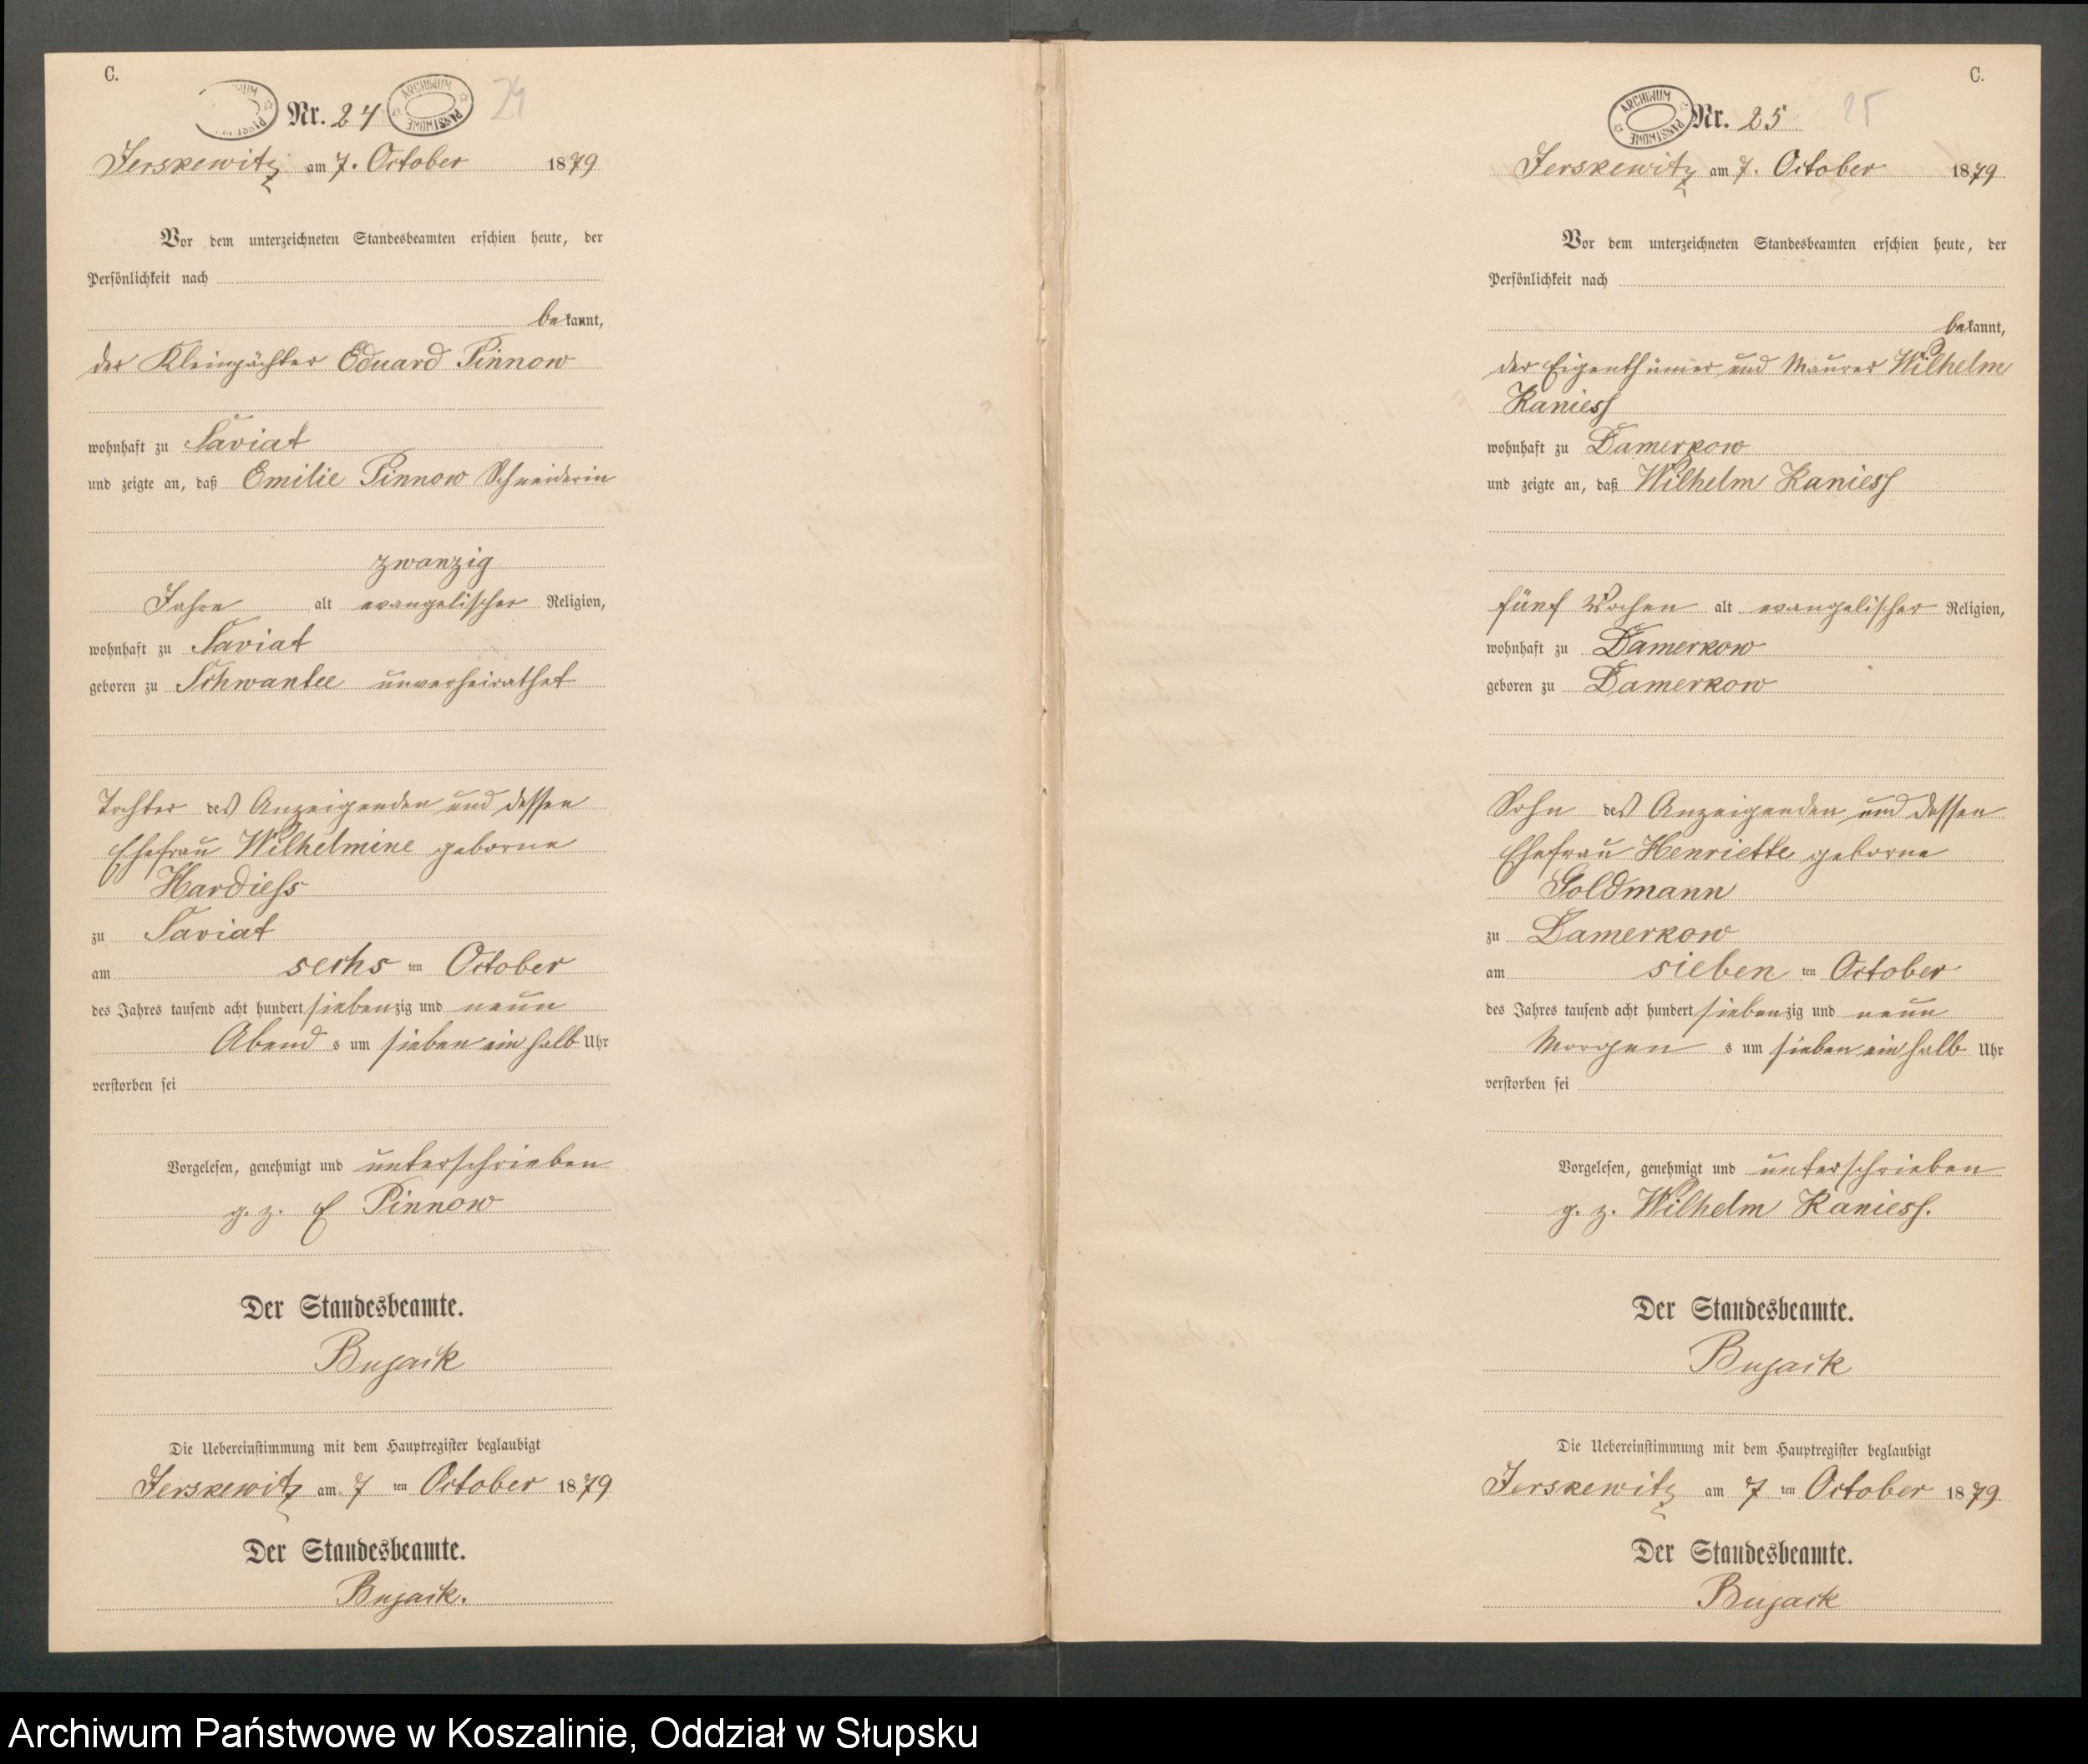 C.
Nr. 24
24
ARCHIWUM PAŃSTWOWE
Jerskewitz am 7. October 1879
Vor dem unterzeichneten Standesbeamten erschien heute, der
Persönlichkeit nach
bekannt,
der Kleinpächter Eduard Pinnow
wohnhaft zu Saviat
und zeigte an, daß Emilie Pinnow Schneiderin
zwanzig
Jahre alt evangelischer Religion,
wohnhaft zu Saviat
geboren zu Schwantee unverheirathet
Tochter des Anzeigenden und dessen
Ehefrau Wilhelmine geborne
Hardiess
zu Saviat
am sechs ten October
des Jahres tausend acht hundert siebenzig und neun
Abend s um sieben ein halb Uhr
verstorben sei
Vorgelesen, genehmigt und unterschrieben
g. z. E Pinnow
Der Standesbeamte.
Bujack
Die Uebereinstimmung mit dem Hauptregister beglaubigt
Jerskewitz am 7 ten October 1879
Der Standesbeamte.
Bujack.
C.
ARCHIWUM PAŃSTWOWE
Nr. 25
25
Jerskewitz am 7. October 1879
Vor dem unterzeichneten Standesbeamten erschien heute, der
Persönlichkeit nach
bekannt,
der Eigenthümer und Maurer Wilhelm
Kaniess
wohnhaft zu Damerkow
und zeigte an, daß Wilhelm Kaniess
fünf Wochen alt evangelischer Religion,
wohnhaft zu Damerkow
geboren zu Damerkow
Sohn des Anzeigenden und dessen
Ehefrau Henriette geborne
Goldmann
zu Damerkow
am sieben ten October
des Jahres tausend acht hundert siebenzig und neun
Morgen s um sieben ein halb Uhr
verstorben sei
Vorgelesen, genehmigt und unterschrieben
g. z. Wilhelm Kaniess.
Der Standesbeamte.
Bujack
Die Uebereinstimmung mit dem Hauptregister beglaubigt
Jerskewitz am 7 ten October 1879
Der Standesbeamte.
Bujack
Archiwum Państwowe w Koszalinie, Oddział w Słupsku